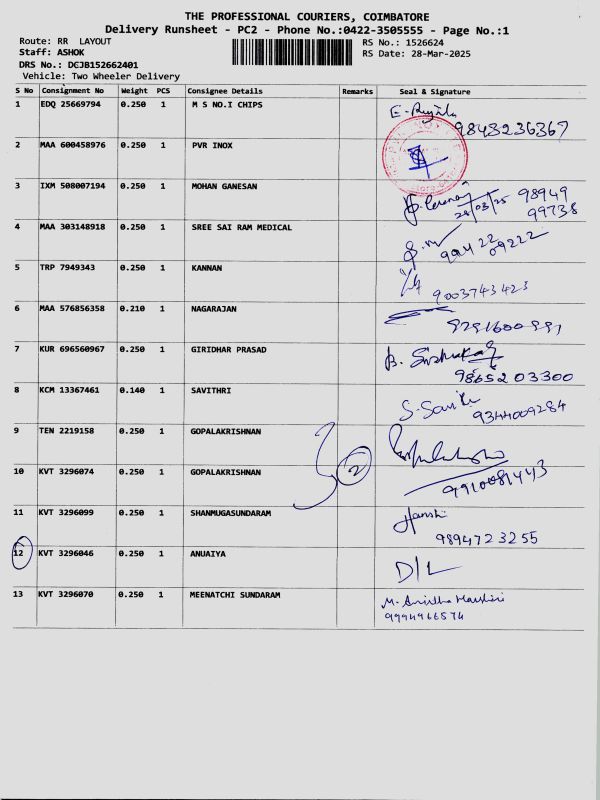 THE PROFESSIONAL COURIERS, COIMBATORE
Delivery Runsheet - PC2 - Phone No.:0422-3505555 - Page No.:1
Route: RR LAYOUT
RS No.: 1526624
Staff: ASHOK
RS Date: 28-Mar-2025
DRS No.: DCJB152662401
Vehicle: Two Wheeler Delivery
S No Consignment No Weight PCS Consignee Details Remarks Seal & Signature
1 EDQ 25669794 0.250 1 M S NO.I CHIPS
9843236367
2 MAA 600458976 0.250 1 PVR INOX
3 IXM 508007194 0.250 1 MOHAN GANESAN
28/03/25 98949
99738
4 MAA 303148918 0.250 1 SREE SAI RAM MEDICAL
99422
09222
5 TRP 7949343 0.250 1 KANNAN
9003743423
6 MAA 576856358 0.210 1 NAGARAJAN
7 KUR 696560967 0.250 1 GIRIDHAR PRASAD
9865203300
8 KCM 13367461 0.140 1 SAVITHRI
9344009284
9 TEN 2219158 0.250 1 GOPALAKRISHNAN
10 KVT 3296074 0.250 1 GOPALAKRISHNAN 2
9910081443
11 KVT 3296099 0.250 1 SHANMUGASUNDARAM Hansh
9894723255
12 KVT 3296046 0.250 1 ANUAIYA D/L
13 KVT 3296070 0.250 1 MEENATCHI SUNDARAM
9994966574